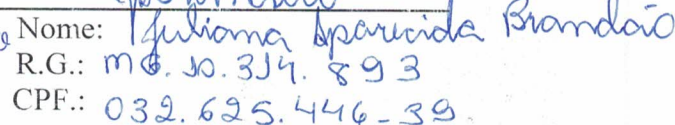 Nome: Juliana Aparecida Brandão
R.G.: MG. 10.314.893
CPF.: 032.625.446-39